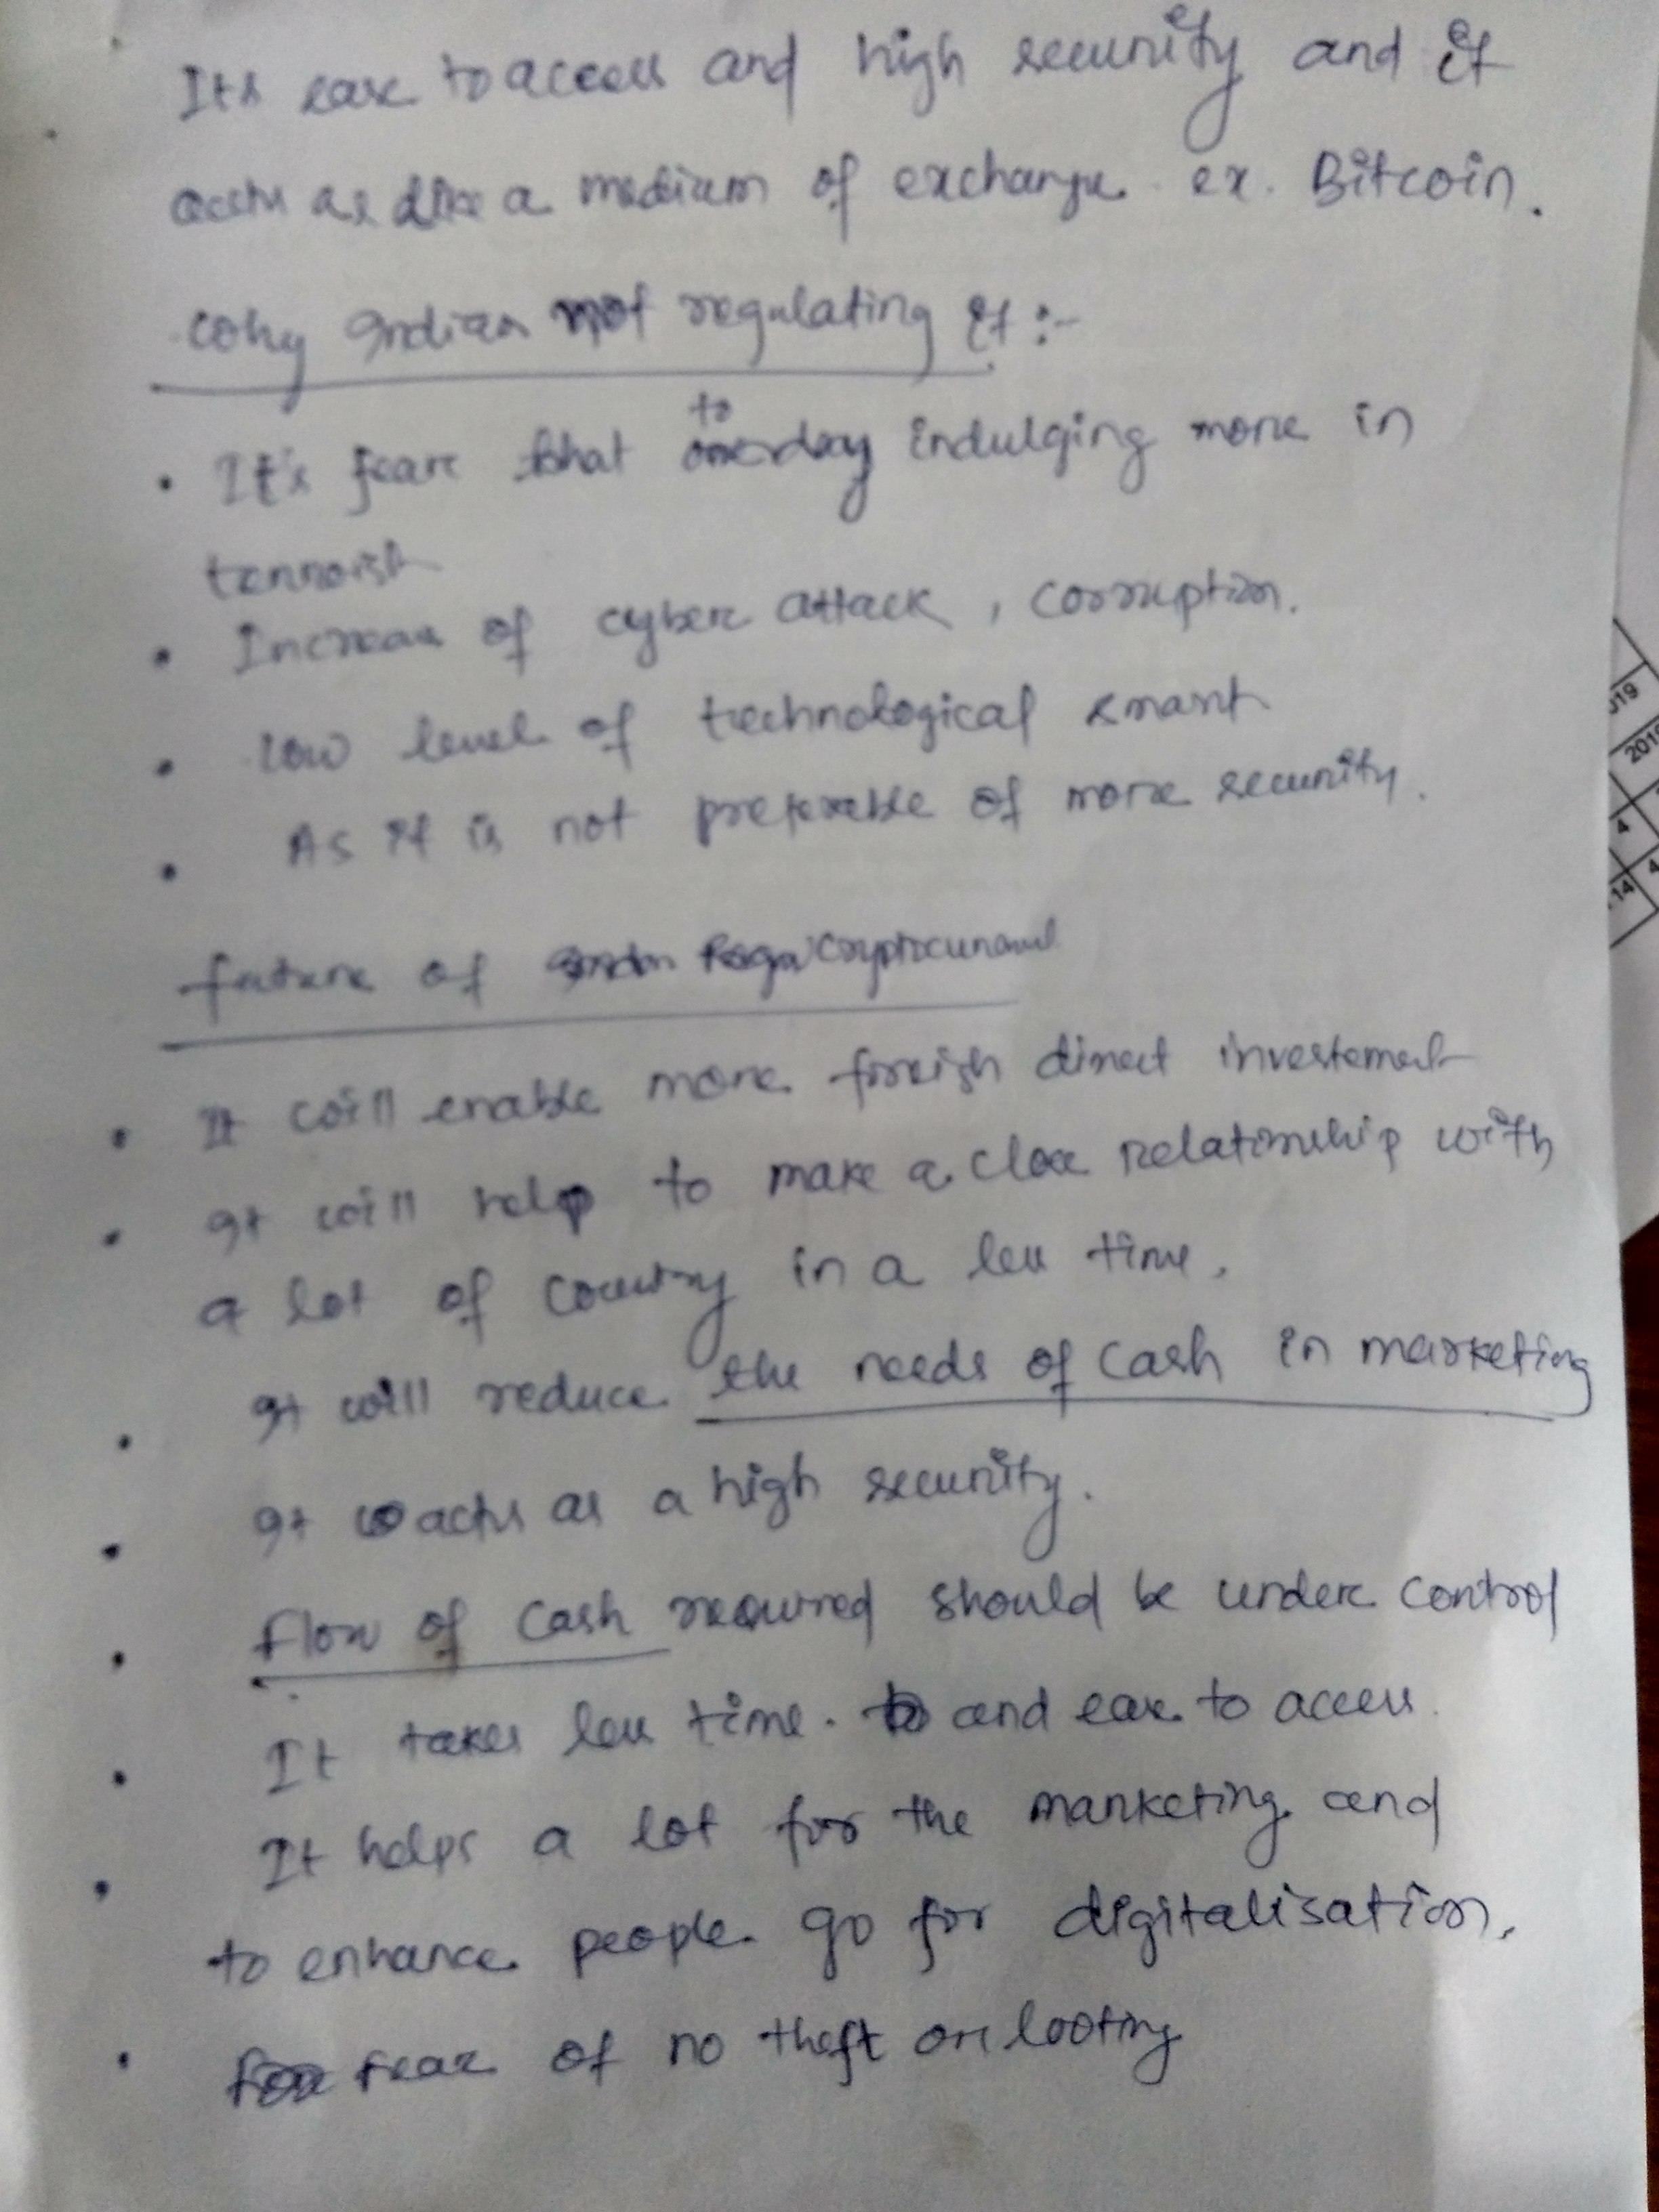 Its ease to access and high security and it
acts as like a medium of exchange. ex. Bitcoin.
why Indian not regulating it :-
to
• It's fear that oneday indulging more in
terroist
• Increase of cyber attack , corruption.
• low level of technological smart
• As it is not preferable of more security.
future of cryptocurrency
• It will enable more foreigh direct investement
• It will help to make a close relationship with
a lot of country in a less time.
• It will reduce the needs of cash in marketing
• It acts as a high security.
• Flow of cash required should be under control
• It takes less time. and ease to access.
• It helps a lot for the marketing and
to enhance people go for digitalisation.
• fear of no theft or looting
019
201
4
4
14